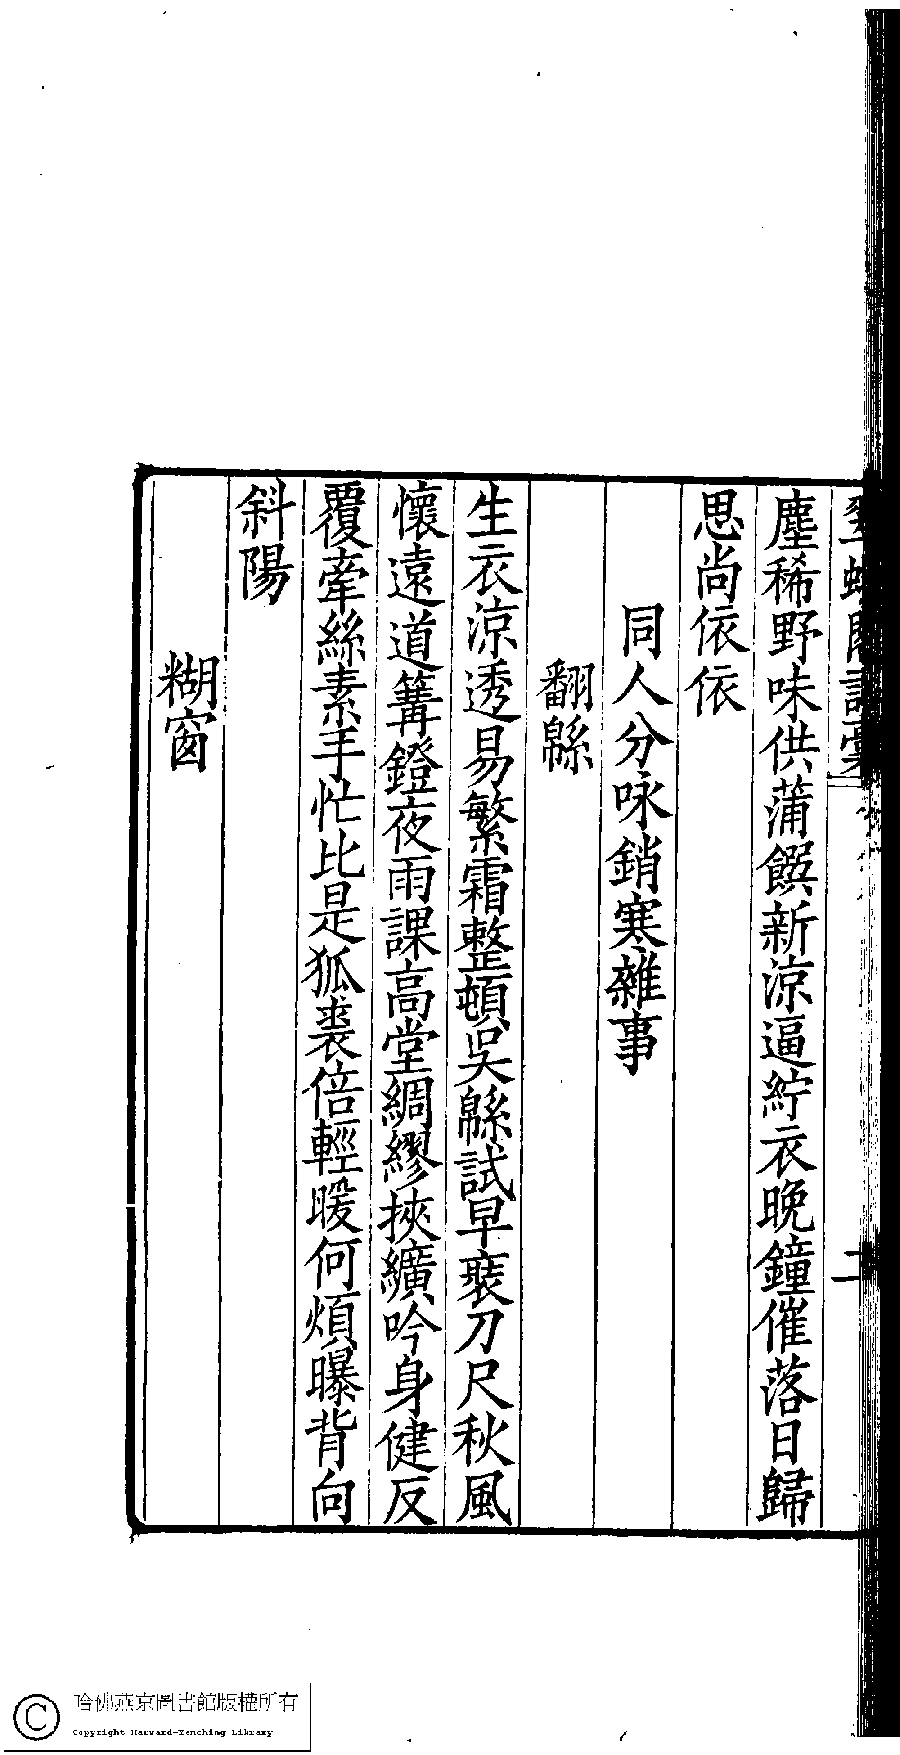 塵稀野味供蒲饌新涼逼紵衣晚鐘催落日歸
思尚依依
同人分咏銷寒雜事
翻緜
生衣涼透易繁霜整頓吳緜試早裝刀尺秋風
懷遠道篝鐙夜雨課高堂綢繆挾纊吟身健反
覆牽絲素手忙比是狐裘倍輕暖何煩曝背向
斜陽
糊窗
哈佛燕京圖書館版權所有
Copyright Harvard-Yenching Library